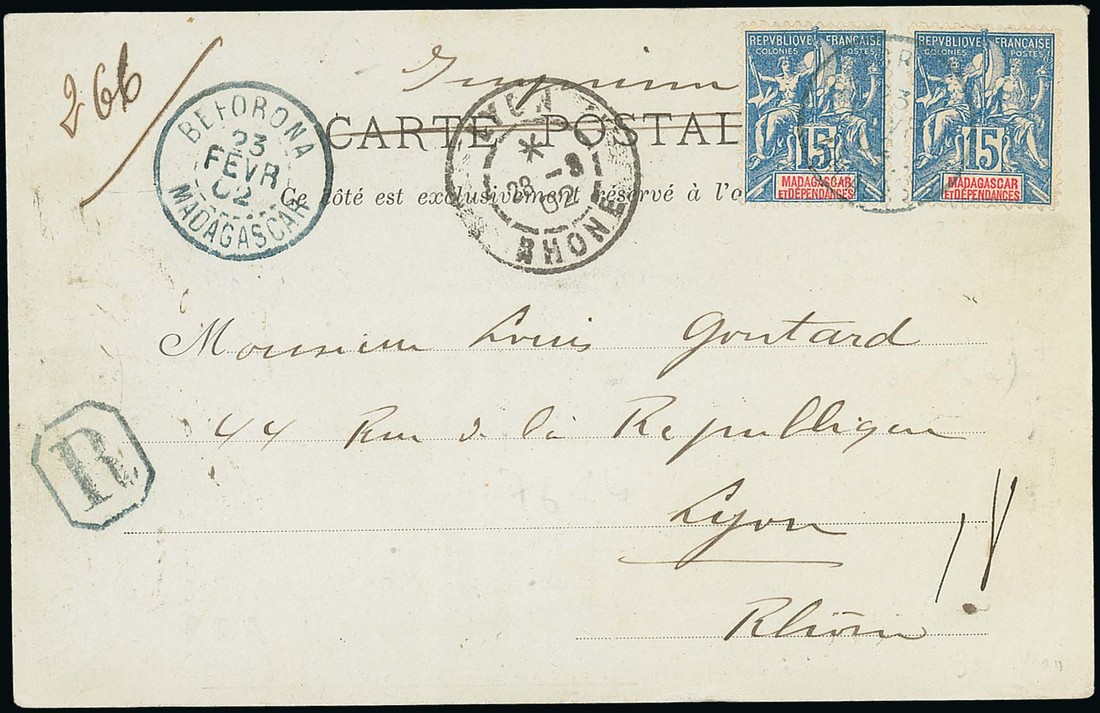 266
Imprimé
CARTE POSTAL
Ce côté est exclusivement réservé à l'a
BEFORONA
23
FEVR
02
MADAGASCAR
LYON
*
28 -3
02
RHONE
REPVBLIQUE FRANÇAISE
COLONIES POSTES
15
MADAGASCAR
ET DÉPENDANCES
REPVBLIQUE FRANÇAISE
COLONIES POSTES
15
MADAGASCAR
ET DÉPENDANCES
Monsieur Louis Goutard
44 Rue de la Republique
R
Lyon
Rhône